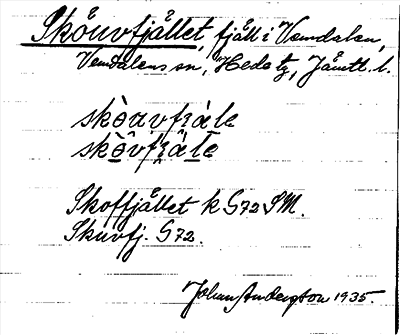 Skôuvfjället, fjäll i Vemdalen,
Vemdalens sn, Hede tg, Jämtl. l.
skòuvfjälę
skòvfjälę
Skoffjället k G72 SM.
Skuvfj. G72.
Johan Anderzson 1935.